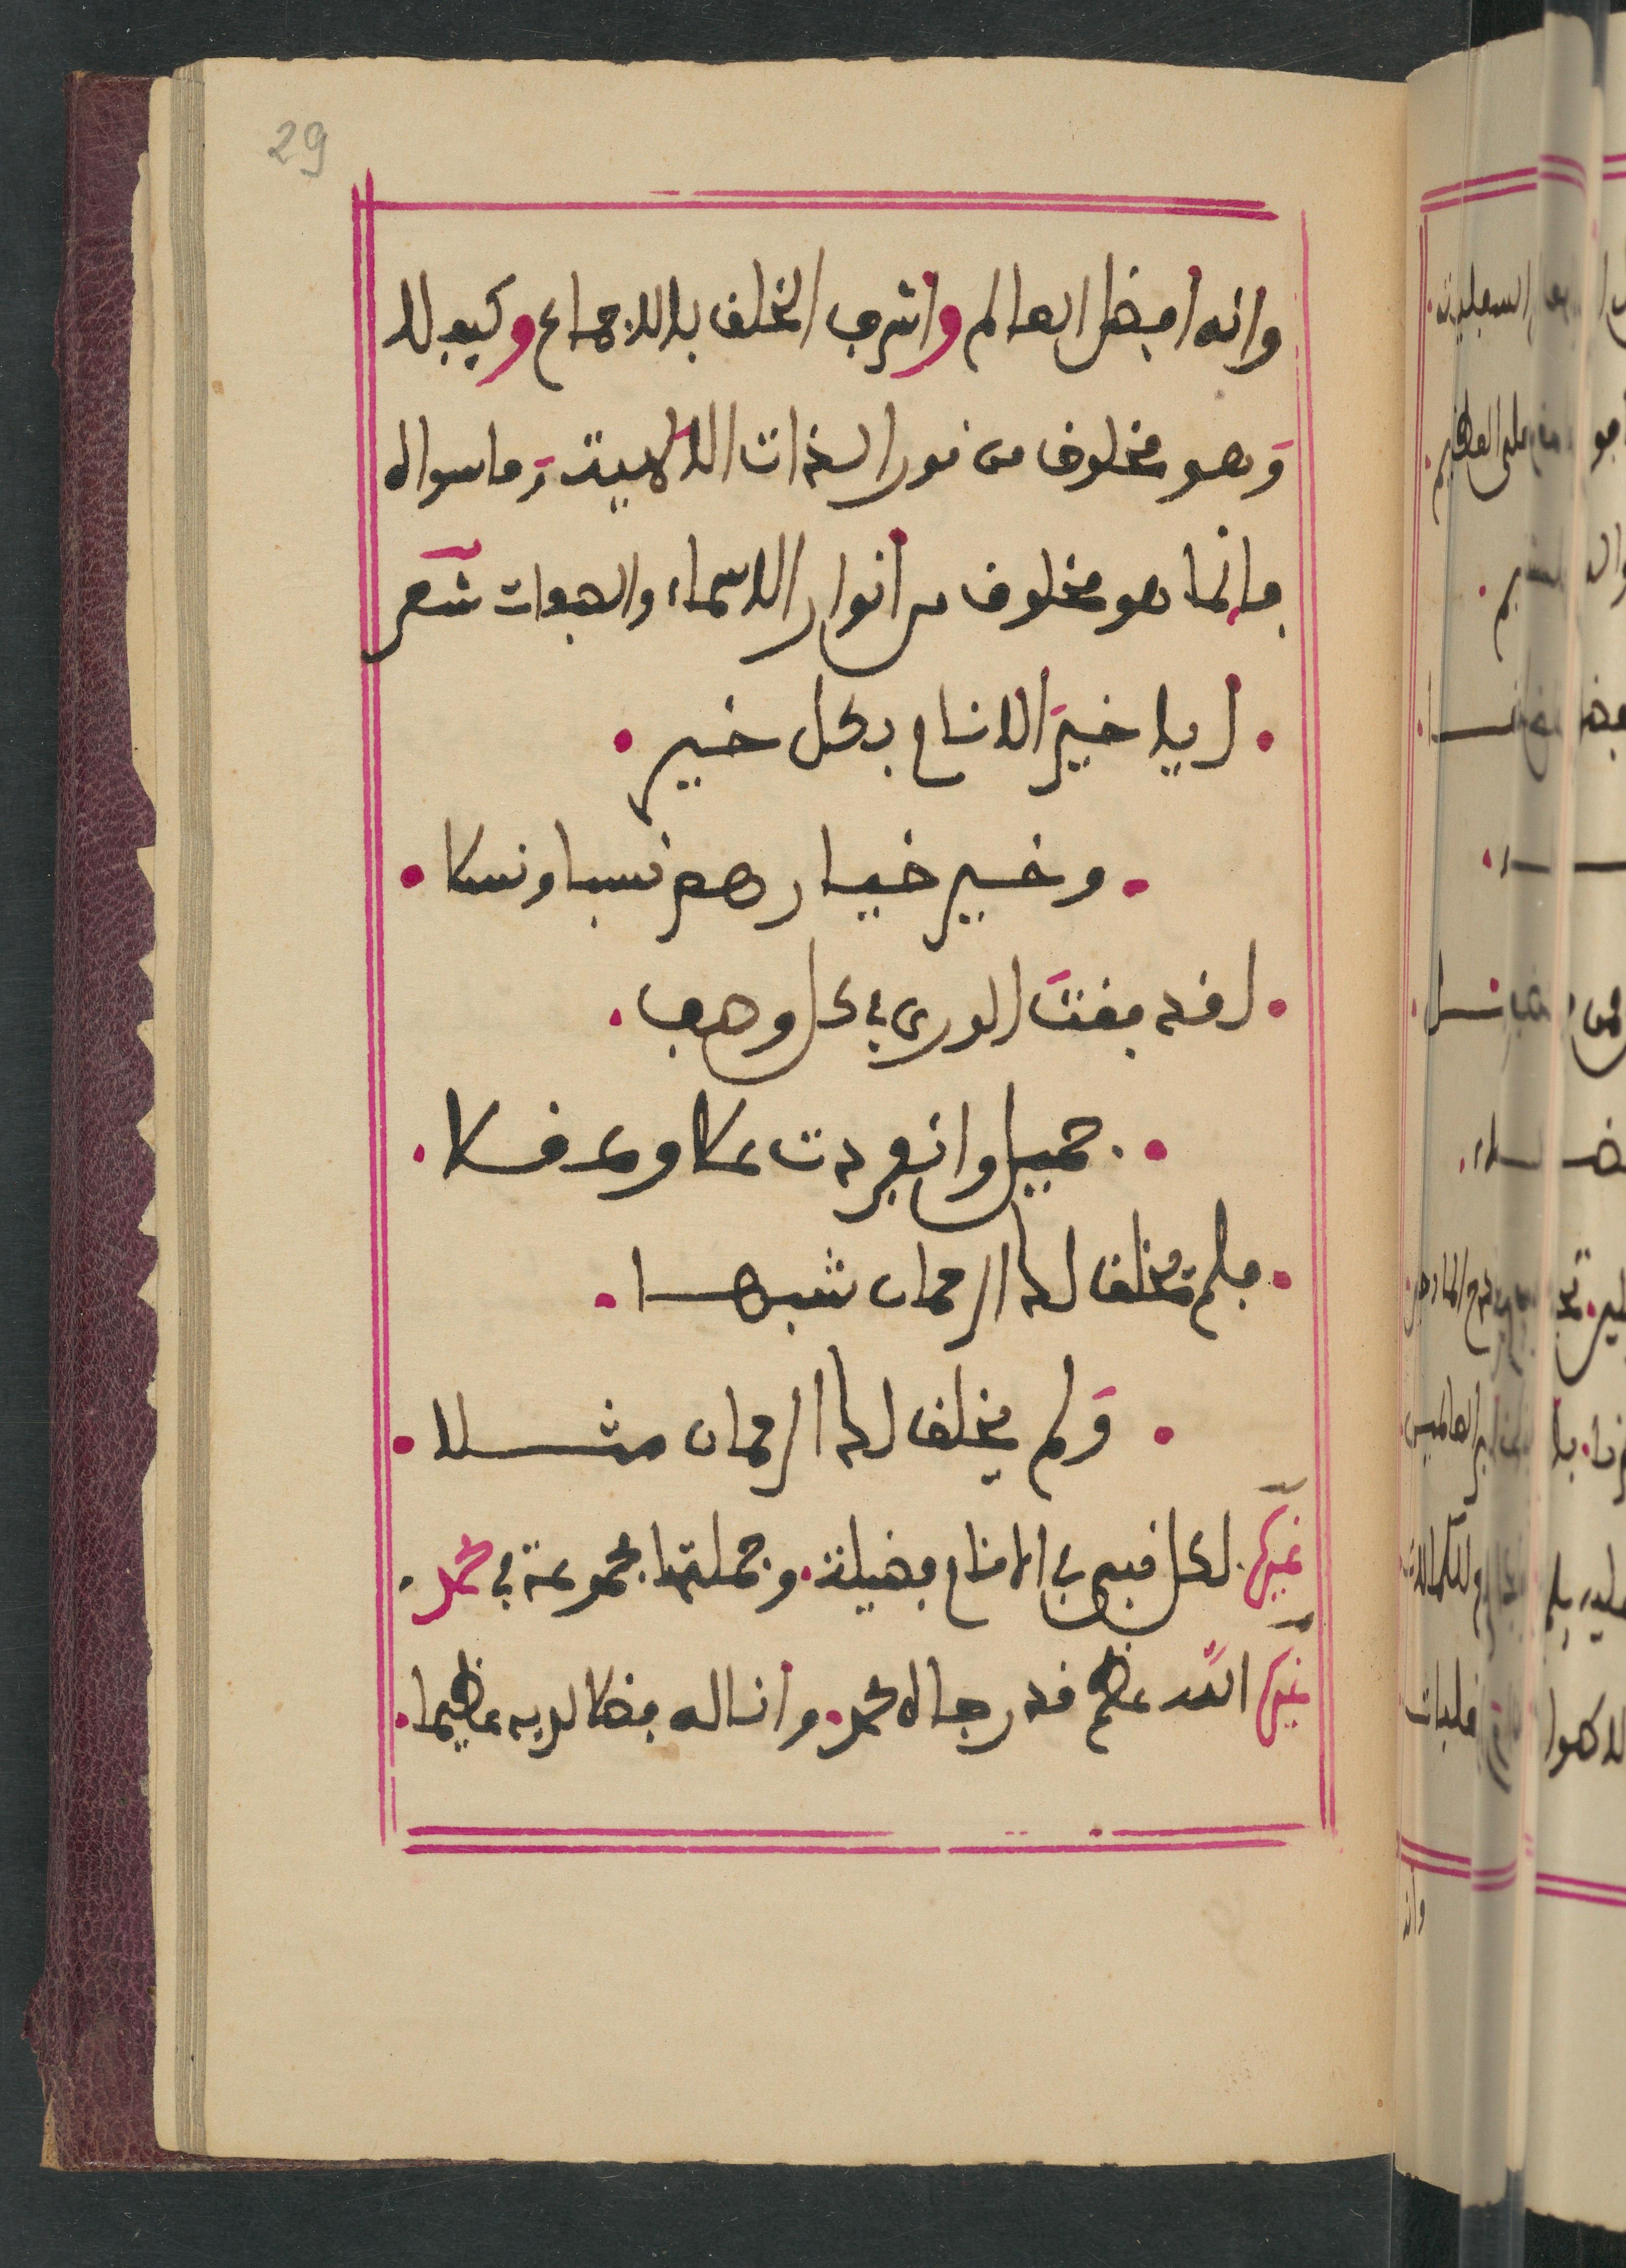 29
وانه افضل العالم واشرف الخلق بالاجماع وكيف لا
وهو مخلوق من نور الذات الالاهية وما سواه
فانما هو مخلوق من انوار الاسماء والصفات شعر
ايا خير الانام بكل خير
وخير خيارهم نسبا ونسكا
لقد فقت الورى في كل وصف
جميل وانفردت علا وعرفا
فلم يخلق لك الرحمان شبها
ولم يخلق لك الرحمان مثلا
غيره لكل نبي في الانام فضيلة وجملتها مجموعة في محمد
غيره الله عظم قدر جاه محمد واناله فضلا لديه عظيما